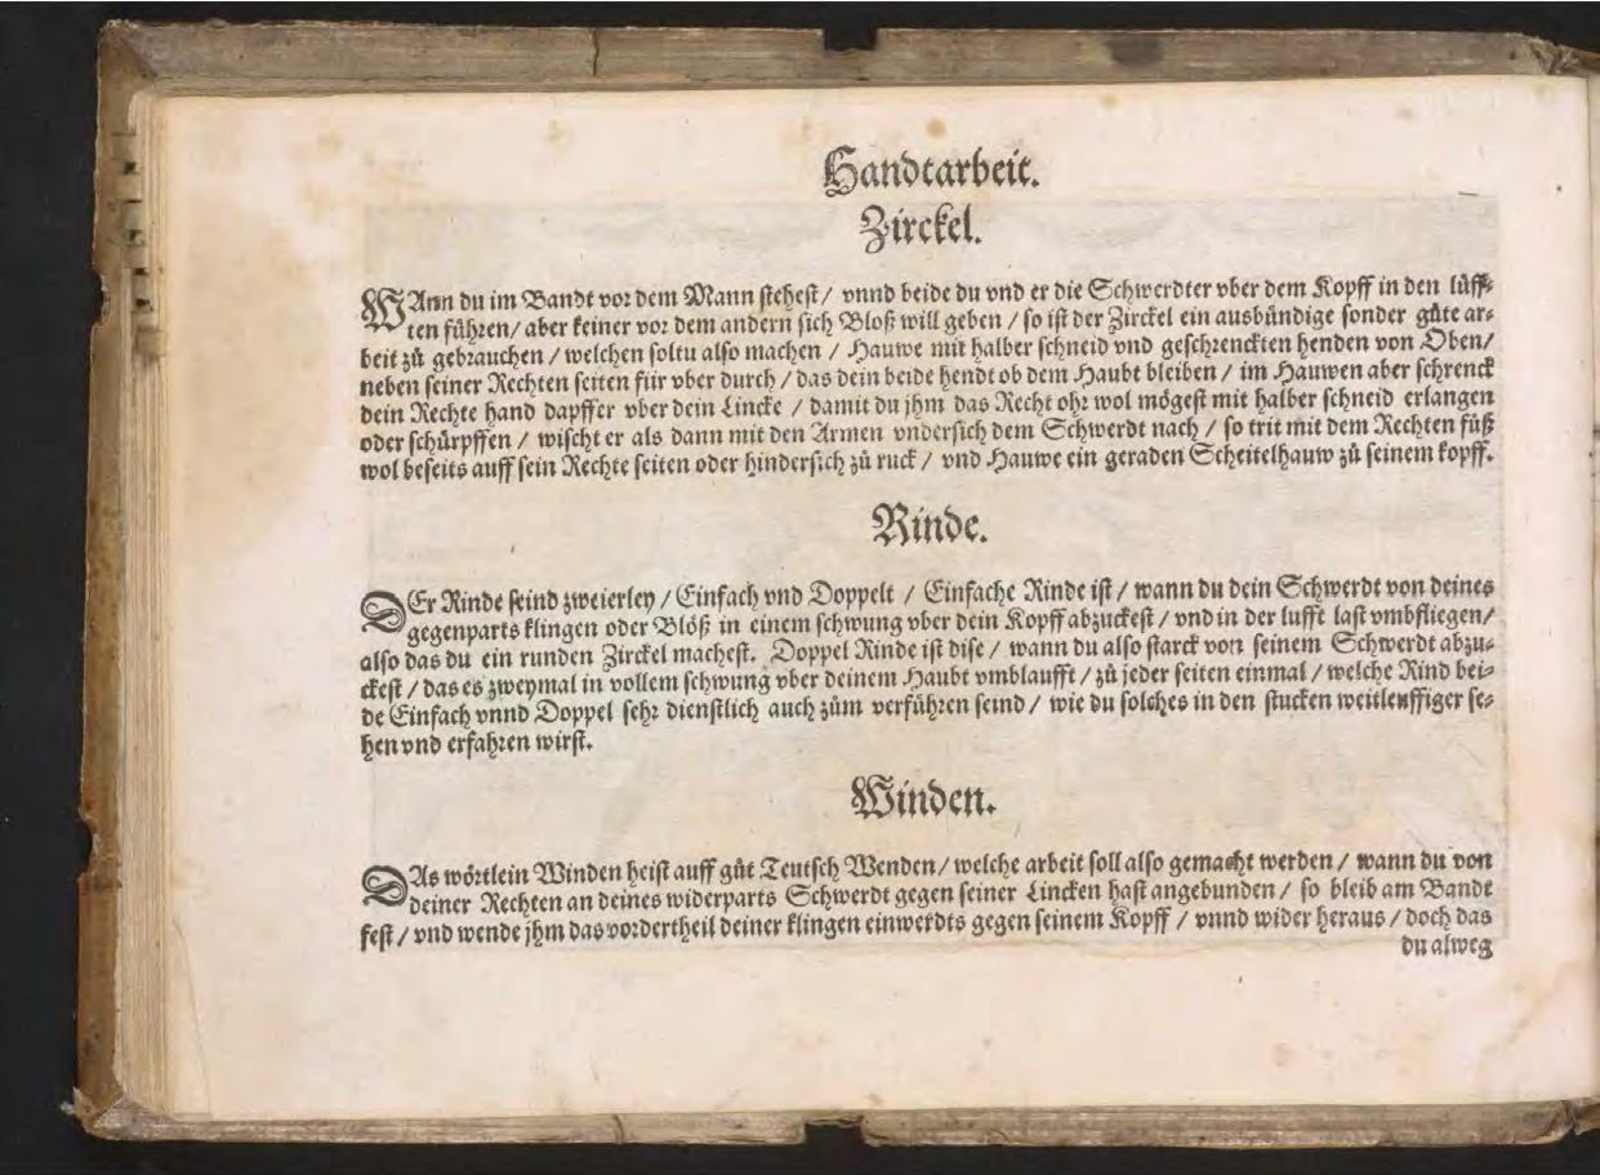 Handtarbeit.
Zirckel.
WAnn du im Bandt vor dem Mann stehest / vnnd beide du vnd er die Schwerdter vber dem Kopff in den lüff-
ten führen / aber keiner vor dem andern sich Bloß will geben / so ist der Zirckel ein ausbündige sonder gůte ar-
beit zů gebrauchen / welchen soltu also machen / Hauwe mit halber schneid vnd geschrenckten henden von Oben /
neben seiner Rechten seiten für vber durch / das dein beide hendt ob dem Haubt bleiben / im Hauwen aber schrenck
dein Rechte hand dapffer vber dein Lincke / damit du jhm das Recht ohr wol mögest mit halber schneid erlangen
oder schürpffen / wischt er als dann mit den Armen vndersich dem Schwerdt nach / so trit mit dem Rechten fůß
wol beseits auff sein Rechte seiten oder hindersich zů ruck / vnd Hauwe ein geraden Scheitelhauw zů seinem kopff.
Rinde.
DEr Rinde seind zweierley / Einfach vnd Doppelt / Einfache Rinde ist / wann du dein Schwerdt von deines
gegenparts klingen oder Blöß in einem schwung vber dein Kopff abzuckest / vnd in der lufft last vmbfliegen /
also das du ein runden Zirckel machest. Doppel Rinde ist dise / wann du also starck von seinem Schwerdt abzu-
ckest / das es zweymal in vollem schwung vber deinem Haubt vmblaufft / zů jeder seiten einmal / welche Rind bei-
de Einfach vnnd Doppel sehr dienstlich auch zům verführen seind / wie du solches in den stucken weitleuffiger se-
hen vnd erfahren wirst.
Winden.
DAs wörtlein Winden heist auff gůt Teutsch Wenden / welche arbeit soll also gemacht werden / wann du von
deiner Rechten an deines widerparts Schwerdt gegen seiner Lincken hast angebunden / so bleib am Bandt
fest / vnd wende jhm das vordertheil deiner klingen einwerdts gegen seinem Kopff / vnnd wider heraus / doch das
du alweg